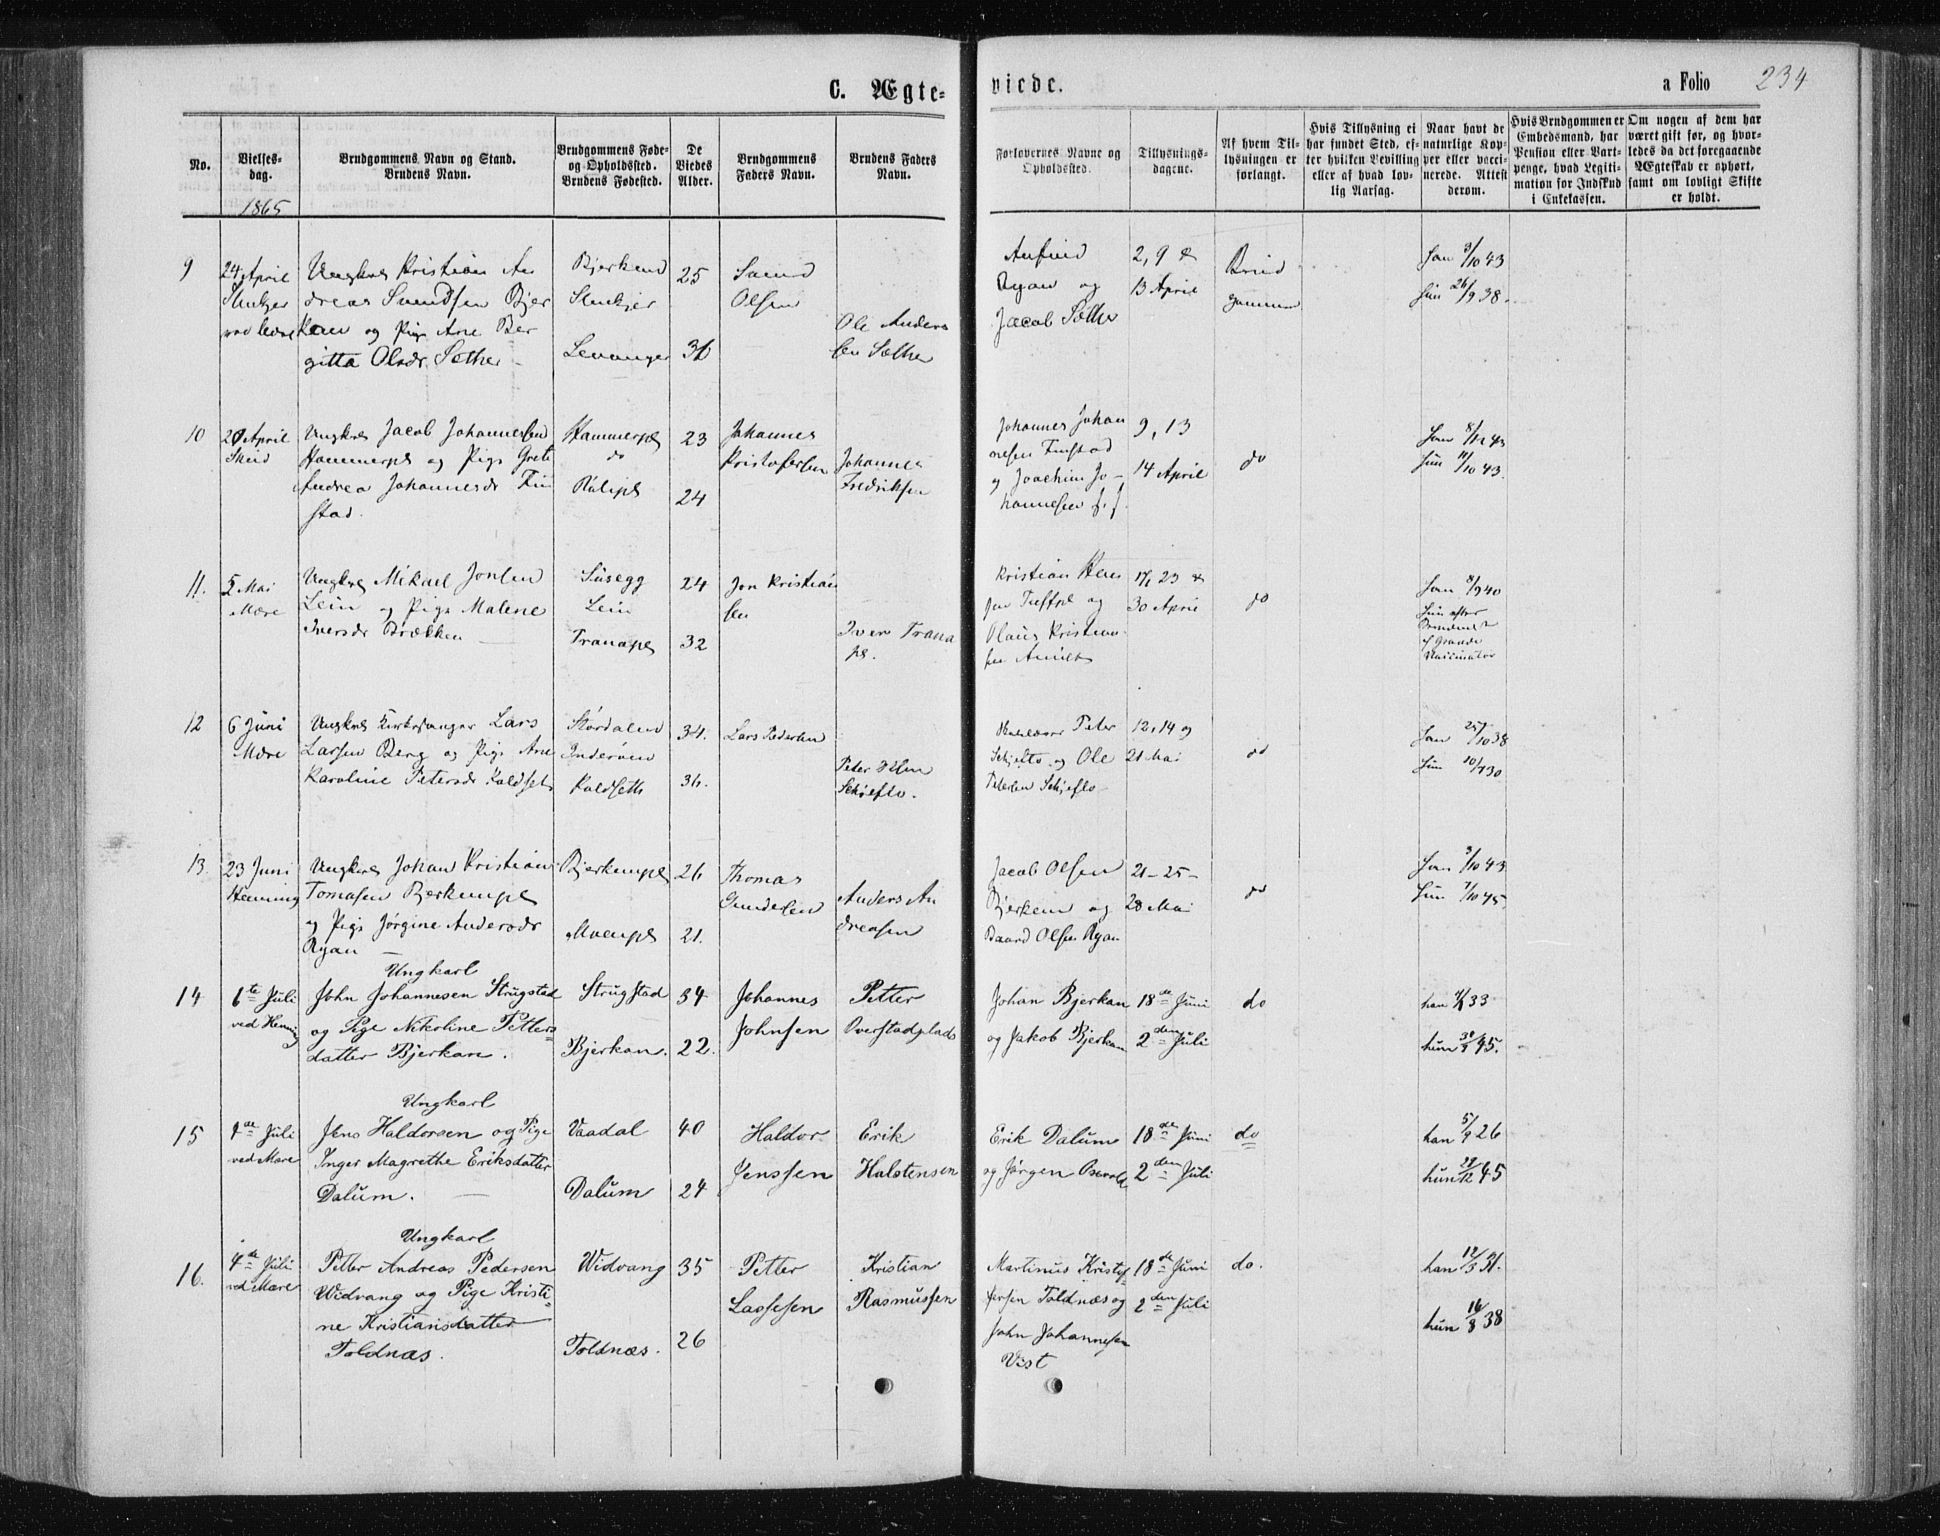 C. Ægte-
viede.
a Folio 234
No.
Vielses-
dag.
1865
Brudgommens Navn og Stand.
Brudens Navn.
Brudgommens Føde-
og Opholdssted.
Brudens Fødested.
De
Viedes
Alder.
Brudgommens
Faders Navn.
Brudens Faders
Navn.
Forlovernes Navne og
Opholdssted.
Tillysnings-
dagene.
Af hvem Til-
lysningen er
forlangt.
Hvis Tillysning ei
har fundet Sted, ef-
ter hvilken Bevilling
eller af hvad lov-
lig Aarsag.
Naar havt de
naturlige Kop-
per eller vacci-
nerede. Attest
derom.
Hvis Brudgommen er
Embedsmand, har
Pension eller Vart-
penge, hvad Legiti-
mation for Indskud
i Enkekassen.
Om nogen af dem har
været gift før, og hvor-
ledes da det foregaaende
Ægteskab er ophørt,
samt om lovligt Skifte
er holdt.
9
24 April
Ungkarl Kristian An
dreas Svendsen Bjer
kem og Pige Ane Ber
gitta Olsdr. Sæther
Bjerkem
Stenkjer
Levanger
25
31
Svend
Olsen
Ole Anders
sen Sæther
Anfind
Ryan og
Jacob Sæther
2, 9 &
13 April
Brud
gommen
Han 9/10 43
Hun 26/9 38.
10
Ungkarl Jacob Johannessen
Hammerpl og Pige Grete
Andrea Johannesdr Fin
stad.
Hammerpl
do
23
24
Johannes
Kristofersen
Johannes
Fredriksen
Johannes Johan
nesen Finstad
og Joachim Jo-
hannesen
9, 13
14 April
do
Hun 11/10 43.
11.
5 Mai
Mære
Ungkarl Mikael Jonsen
Lein og Pige Malene
Iversdr Brækken
Susegg
Lein
Tranapl
24
32
Jon Kristian
sen
Iver Trana
pl.
Kristian
og
Olaus Kristian
sen
17, 23 &
30 April
do
Han 8/9 40
Hun efter
Vaccinator
12
6 Juni
Mære
Ungkarl Kirkesanger Lars
Larsen Berg og Pige Ane
Karoline Petersdr Koldset
Størdalen
Inderøen
Koldseth
34.
36.
Lars Pedersen
Peter Olsen
Schjeflo.
Peter
Schjeflo og Ole
Petersen Schjeflo
12, 14 og
21 Mai
do
Han 25/10 38
Hun 10/7 30
13.
23 Juni
Henning
Ungkarl Johan Kristian
Tomasen Bjerkempl
og Pige Jørgine Andersdr
Ryan
Bjerkempl
Moenpl
26
21.
Thomas
Gundersen
Anders An
dreasen
Jacob Olsen
Bjerkem og
Baard Olsen Ryan
21-25-
28 Mai
do
Han 9/10 43
Hun 7/10 45.
14
1te Juli
ved Henning
Ungkarl
John Johannesen Strugstad
og Pige Nikoline Petters=
datter Bjerkan.
Strugstad
Bjerkan.
34
22.
Johannes
Johnsen
Petter
Overstadplads
Johan Bjerkan
og Jakob Bjerkan
18de Juni
2den Juli
do
han 33
hun 45.
15
4de Juli
ved Mære
Ungkarl
Jens Haldorsen og Pige
Inger Magrethe Eriksdatter
Dalum.
Vaadal
Dalum
40
24
Haldor
Jenssen
Erik
Halstensen
Erik Dalum
og Jørgen Oservold
18de Juni
2den Juli
do
han 5/9 26
hun 29/12 45
16.
4de Juli
ved Mære
Ungkarl
Petter Andreas Pedersen
Widvang og Pige Kristi=
ne Kristiansdatter
Toldnæs.
Widvang
Toldnæs.
35
26
Petter
Lassesen
Kristian
Rasmussen
Martinus Kristof=
fersen Toldnæs og
John Johannesen
Vist
18de Juni
2den Juli
do.
han 12/3 31.
hun 16/8 38